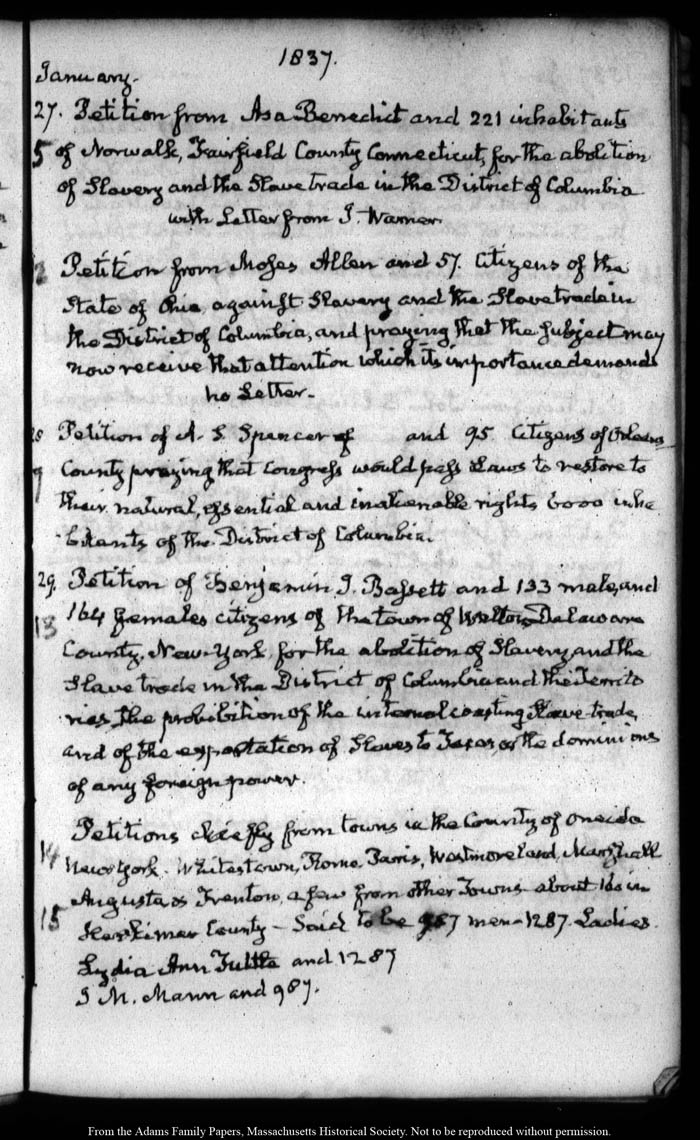 1837.
January.
27. Petition from Asa Benedict and 221 inhabitants
5 of Norwalk, Fairfield County Connecticut, for the abolition
of Slavery and the Slave trade in the District of Columbia
with Letter from J. Warner.
Petition from Moses Allen and 57. Citizens of the
State of Ohio, against Slavery and the Slave trade in
the District of Columbia, and praying that the subject may
now receive that attention which its importance demands
no Letter.
Petition of A. S. Spencer of and 95. Citizens of Orleans
9 County praying that Congress would pass Laws to restore to
their natural, essential and inalienable rights 6000 inha
bitants of the District of Columbia.
29. Petition of Benjamin J. Bassett and 133 male, and
13 164 females citizens of the town of Delaware
County, New-York, for the abolition of Slavery, and the
Slave trade in the District of Columbia and the Territo
ries, the prohibition of the internal coasting Slave-trade,
and of the exportation of Slaves to Texas, or the dominions
of any foreign power.
Petitions chiefly from towns in the County of Oneida
14 New York. Whitestown, Rome, Paris, Westmoreland, Marshall
Augusta & Trenton, a few from other Towns about 160 in
15 Herkimer County - Said to be 987 men - 1287. Ladies.
Lydia Ann Tuttle and 1287
J M. Mann and 987.
From the Adams Family Papers, Massachusetts Historical Society. Not to be reproduced without permission.